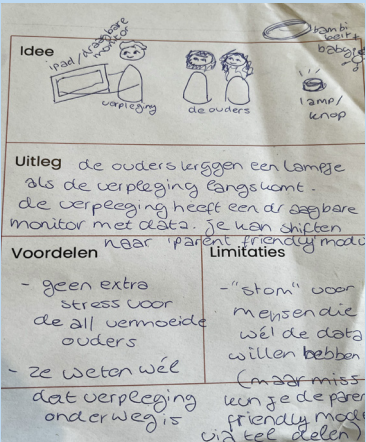 Idee
ipad/draagbare
monitor
verpleging
de ouders
lamp/
knop
bambi
belt
baby
Uitleg de ouders krijgen een lampje
als de verpleging langs komt.
de verpleging heeft een draagbare
monitor met data. je kan shiften
naar 'parent friendly' modu
Voordelen
- geen extra
stress voor
de all vermoeide
ouders
- ze weten wél
dat verpleging
onderweg is
Limitaties
- "stom" voor
mensen die
wél de data
willen hebben
(maar miss
kun je de paren
friendly mode
via tel delen)